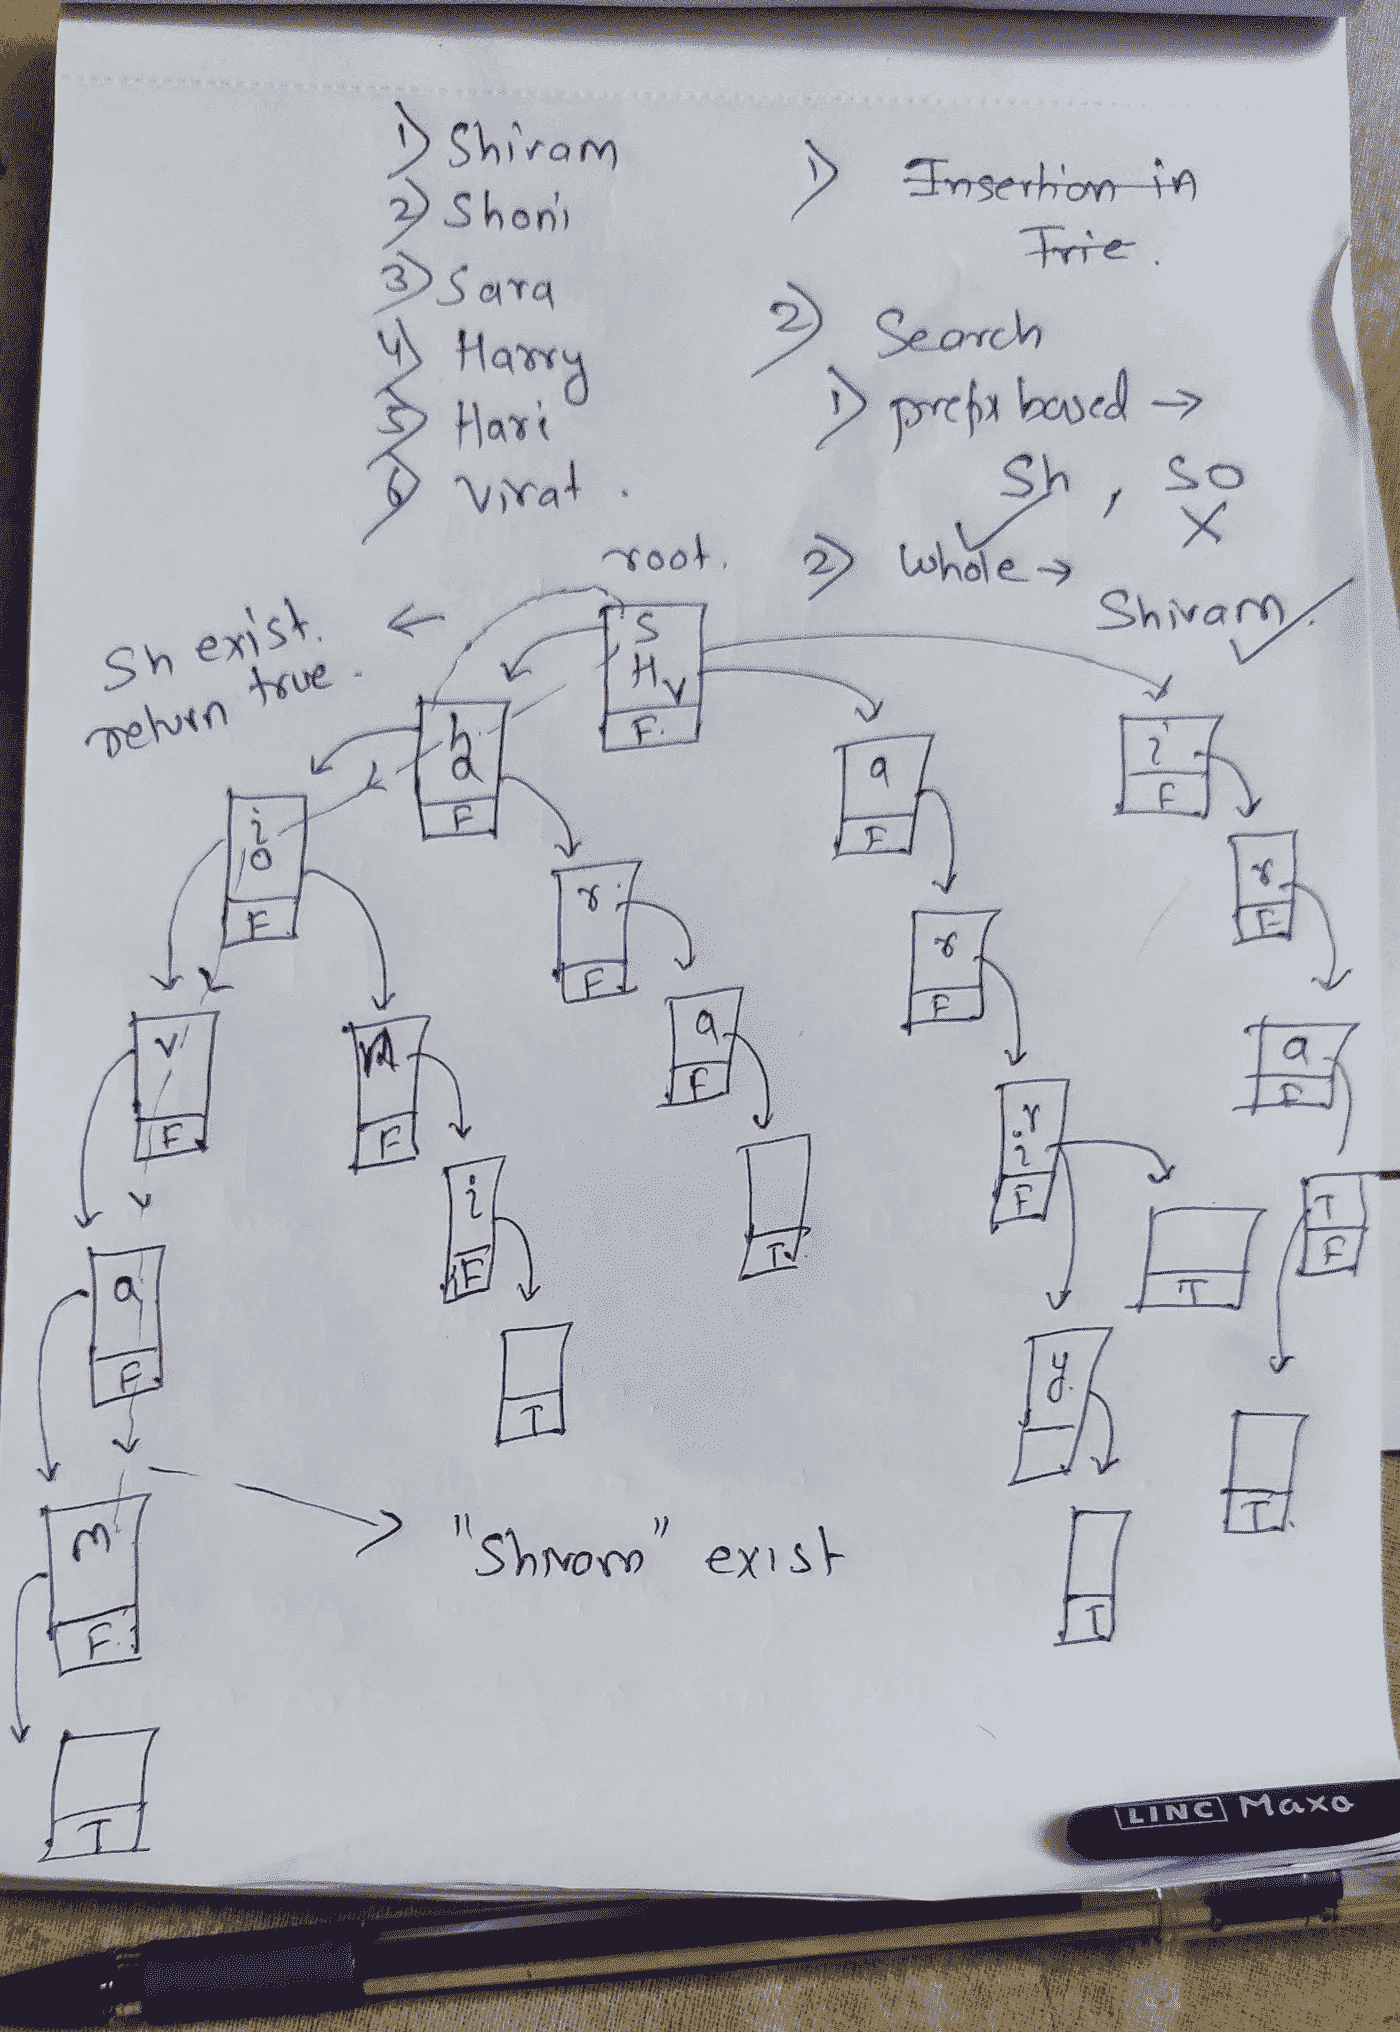 1) Shivam
2) Shoni
3) Sara
4) Harry
5) Hari
6) Virat.
1) Insertion in
Trie.
2) Search
1) prefix based →
Sh, SO
✓ X
2) Whole →
Shivam. ✓
root.
Sh exist. ←
return true.
S
H V
F.
h
a
F
a
F
i
F
i
o
F
r
F
r
F
r
F
a
F
v
F
n
F
a
F
r
i
F
i
F
T
T
T
F
a
F
T
y
T
m
F
T
T
"Shivam" exist
LINC Maxo